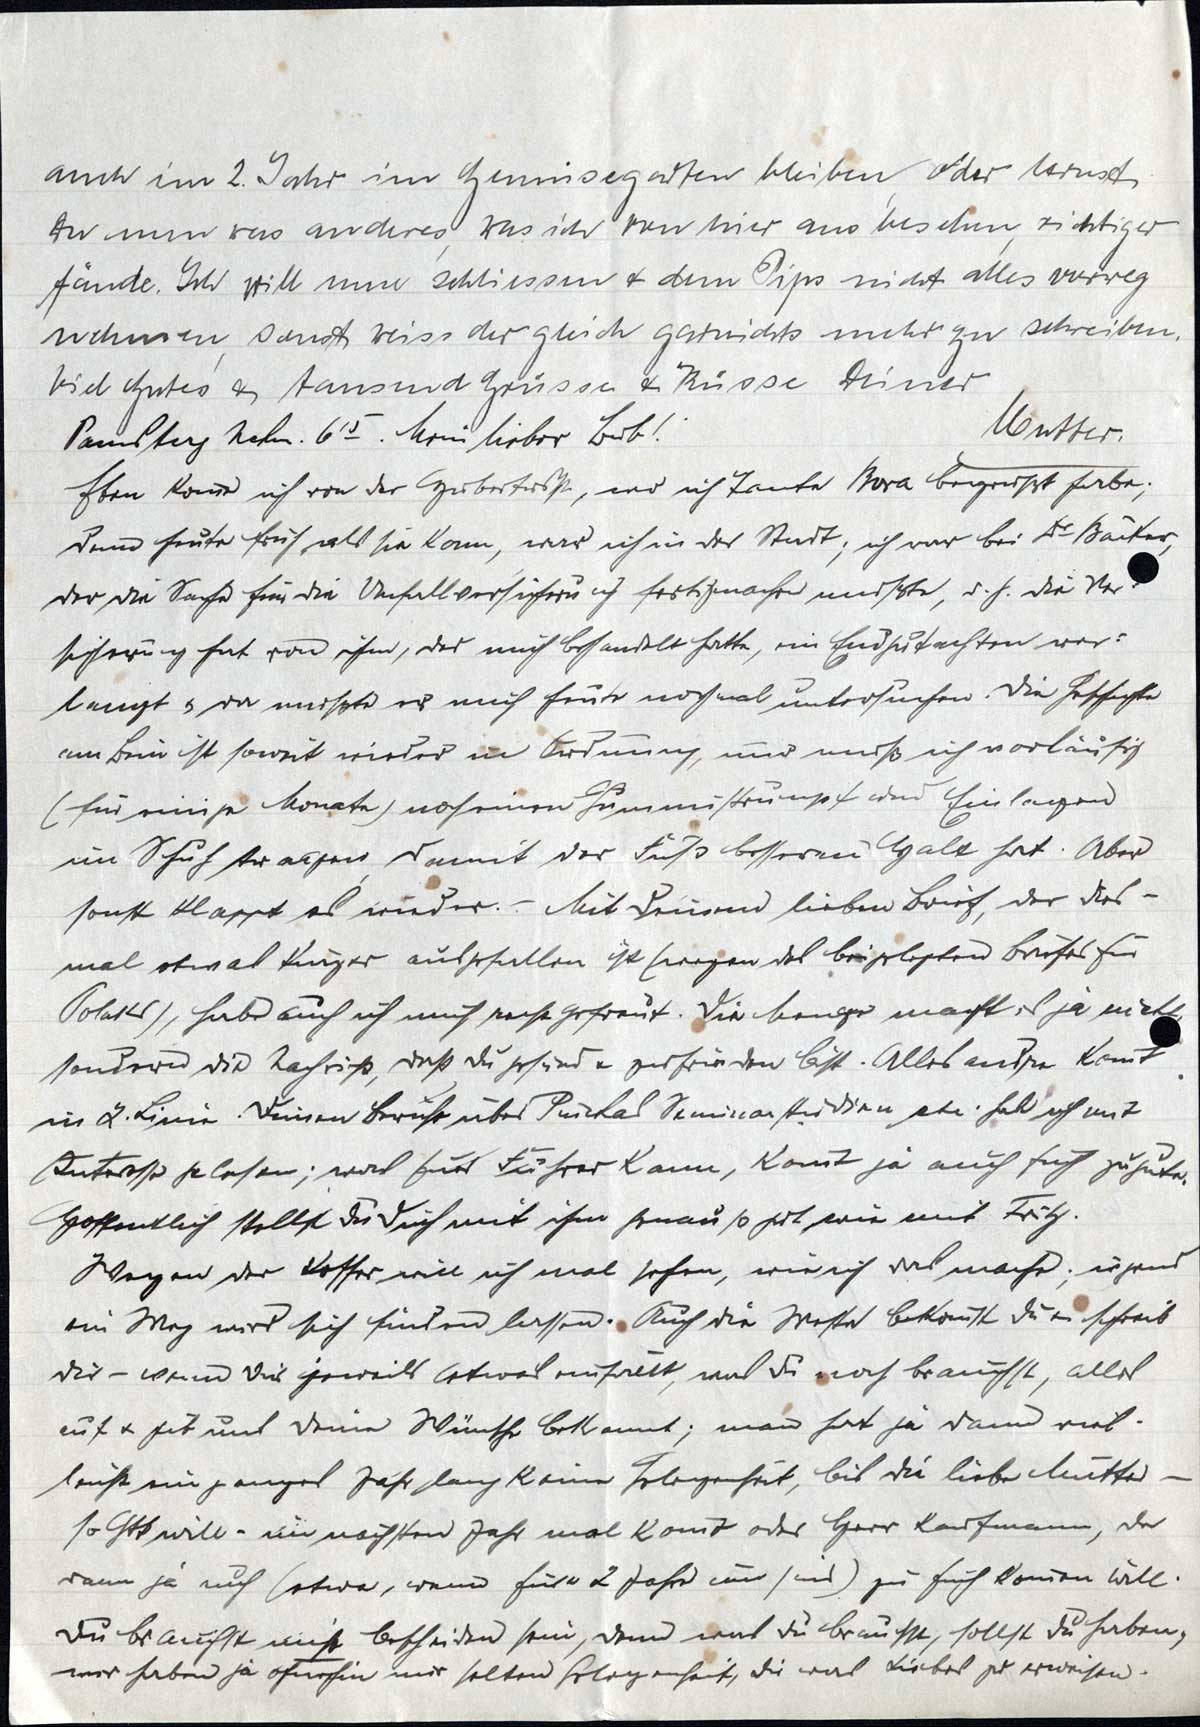 auch im 2. Jahr im Gemüsegarten bleiben, oder lernst
Du nun was anderes, was ich von hier aus besehen, richtiger
fände. Ich will nun schliessen & dem Pips nicht alles vorweg
nehmen, sonst weiss der gleich garnichts mehr zu schreiben.
Viel Gutes & tausend Grüsse & Küsse Deiner
Mutter.
Nchm. 6¹⁵. Mein lieber Bub!
Eben komme ich von der, wo ich Tante Nora begrüßt habe;
denn heute früh, als sie kam, war ich in der Stadt; ich war bei Dr.
der die Sache für die Unfallversicherung fertigmachen mußte, d. h. die Ver-
sicherung hat von ihm, der mich behandelt hatte, ein Endgutachten ver-
langt & da mußte er mich heute nochmal untersuchen. Die Geschichte
am Bein ist soweit wieder in Ordnung, nur muß ich vorläufig
(für einige Monate) noch einen Gummistrumpf und Einlagen
im Schuh tragen, damit der Fuß besseren Halt hat. Aber
sonst klappt es wieder. – Mit Deinem lieben Brief, der dies-
mal etwas kürzer ausgefallen ist (wegen des beigelegten Briefes für
), habe auch ich mich sehr gefreut. Die Menge macht es ja nicht,
sondern die Nachricht, daß Du gesund & zufrieden bist. Alles andre kommt
in 2. Linie. Deinen Bericht über Seminarstudien etc. hab ich mit
Interesse gelesen; was Euer Führer kann, kommt ja auch Euch zugute.
Hoffentlich stellst Du Dich mit ihm genau so gut wie mit Fritz.
Wegen der Koffer will ich mal sehen, wie ich das mache; irgend
ein Weg wird sich finden lassen. Auch die Weste bekommst Du & schreib
dir – wenn Dir jeweils etwas einfällt, was Du noch brauchst, alles
auf & gib uns Deine Wünsche bekannt; man hat ja dann viel-
leicht ein ganzes Jahr lang keine Gelegenheit, bis die liebe Mutter –
so Gtt will – im nächsten Jahr mal kommt oder Herr Kaufmann, der
dann ja auch (etwa, wenn Eure 2 Jahre um sind) zu Euch kommen will.
Du brauchst nicht bescheiden sein, denn was Du brauchst, sollst Du haben,
wir haben ja ohnehin nur selten Gelegenheit, Dir was Liebes zu erweisen.